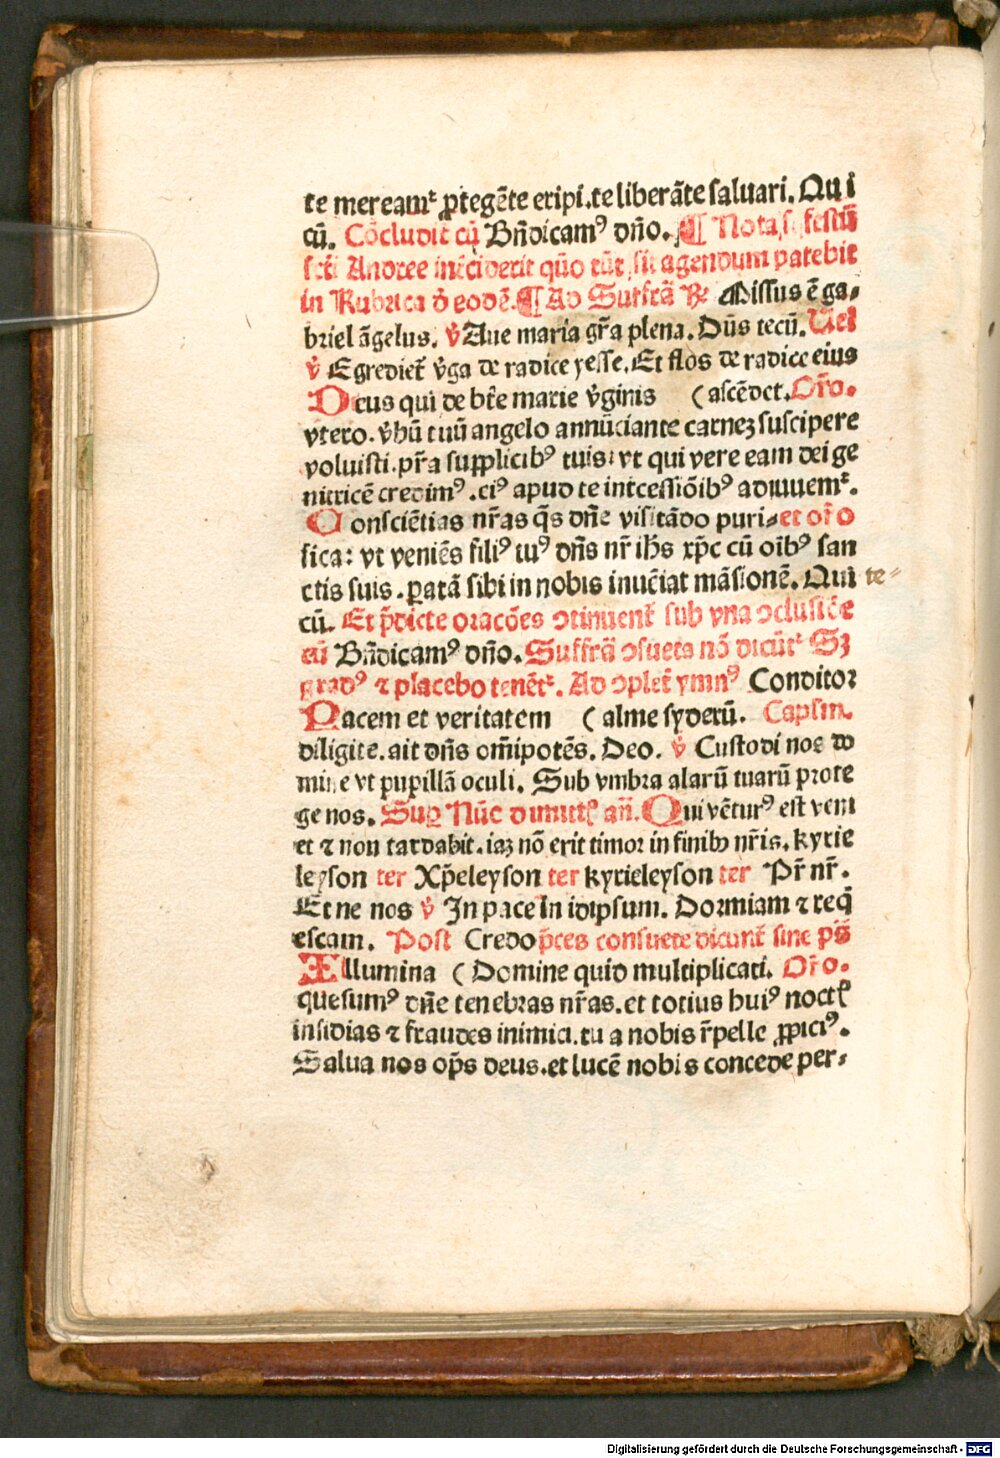 te mereamᷣ ꝓtegēte eripi.te liberāte saluari. Qui
cū. Cōcludit cū Bn̄dicamꝰ dn̄o. ¶ Nota si festū
scti Andree inciderit quo tūc sit agendum patebit
in Rubrica de eodē. ¶ Ad Suffrā R̷ Missus ē ga⸗
briel āgelus. v̄ Aue maria gr̄a plena. Dūs tecū. Uel
v̄ Egrediet̄ v̄ga de radice yesse. Et flos de radice eius
Deus qui de bt̄e marie v̄ginis (ascēdet. Or̄o.
vtero. v̄bū tuū angelo annūciante carneꝫ suscipere
voluisti. pr̄a supplicibꝰ tuis: vt qui vere eam dei ge
nitricē credimꝰ. eiꝰ apud te intcessiōibꝰ adiuuemᷣ.
Consciētias nr̄as q̄s dn̄e visitādo puri⸗ et or̄o
fica: vt veniēs filiꝰ tuꝰ dn̄s nr̄ ih̄s xp̄c cū oībꝰ san
ctis suis. patā sibi in nobis inuēiat māsionē. Qui te⸗
cū. Et p̄dicte oracōes ↄtinuent̄ sub vna ↄclusiōe
cū Bn̄dicamꝰ dn̄o. Suffrā ↄsueta nō dicūt̄ Sꝫ
gradꝰ ⁊ placebo tenēt̄. Ad ↄplet̄ ymnꝰ Conditor
Pacem et veritatem (alme syderū. Capsm.
diligite. ait dn̄s om̄ipotēs. Deo. v̄ Custodi nos do
mine vt pupillā oculi. Sub vmbra alarū tuarū prote
ge nos. Suꝑ Nūc dimittꝭ an̄. Qui vēturꝰ est veni
et ⁊ non tardabit. iaꝫ nō erit timor in finibꝰ nr̄is. kyrie
leyson ter Xp̄eleyson ter kyrieleyson ter Pr̄ nr̄.
Et ne nos v̄ In pace In idipsum. Dormiam ⁊ req̄
escam. Post Credo p̄ces consuete dicunt̄ sine ps̄
Illumina (Domine quid multiplicati. Or̄o.
quesumꝰ dn̄e tenebras nr̄as. et totius huiꝰ noctꝭ
insidias ⁊ fraudes inimici. tu a nobis r̄pelle ꝓpiciꝰ.
Salua nos op̄s deus. et lucē nobis concede per⸗
Digitalisierung gefördert durch die Deutsche Forschungsgemeinschaft - DFG